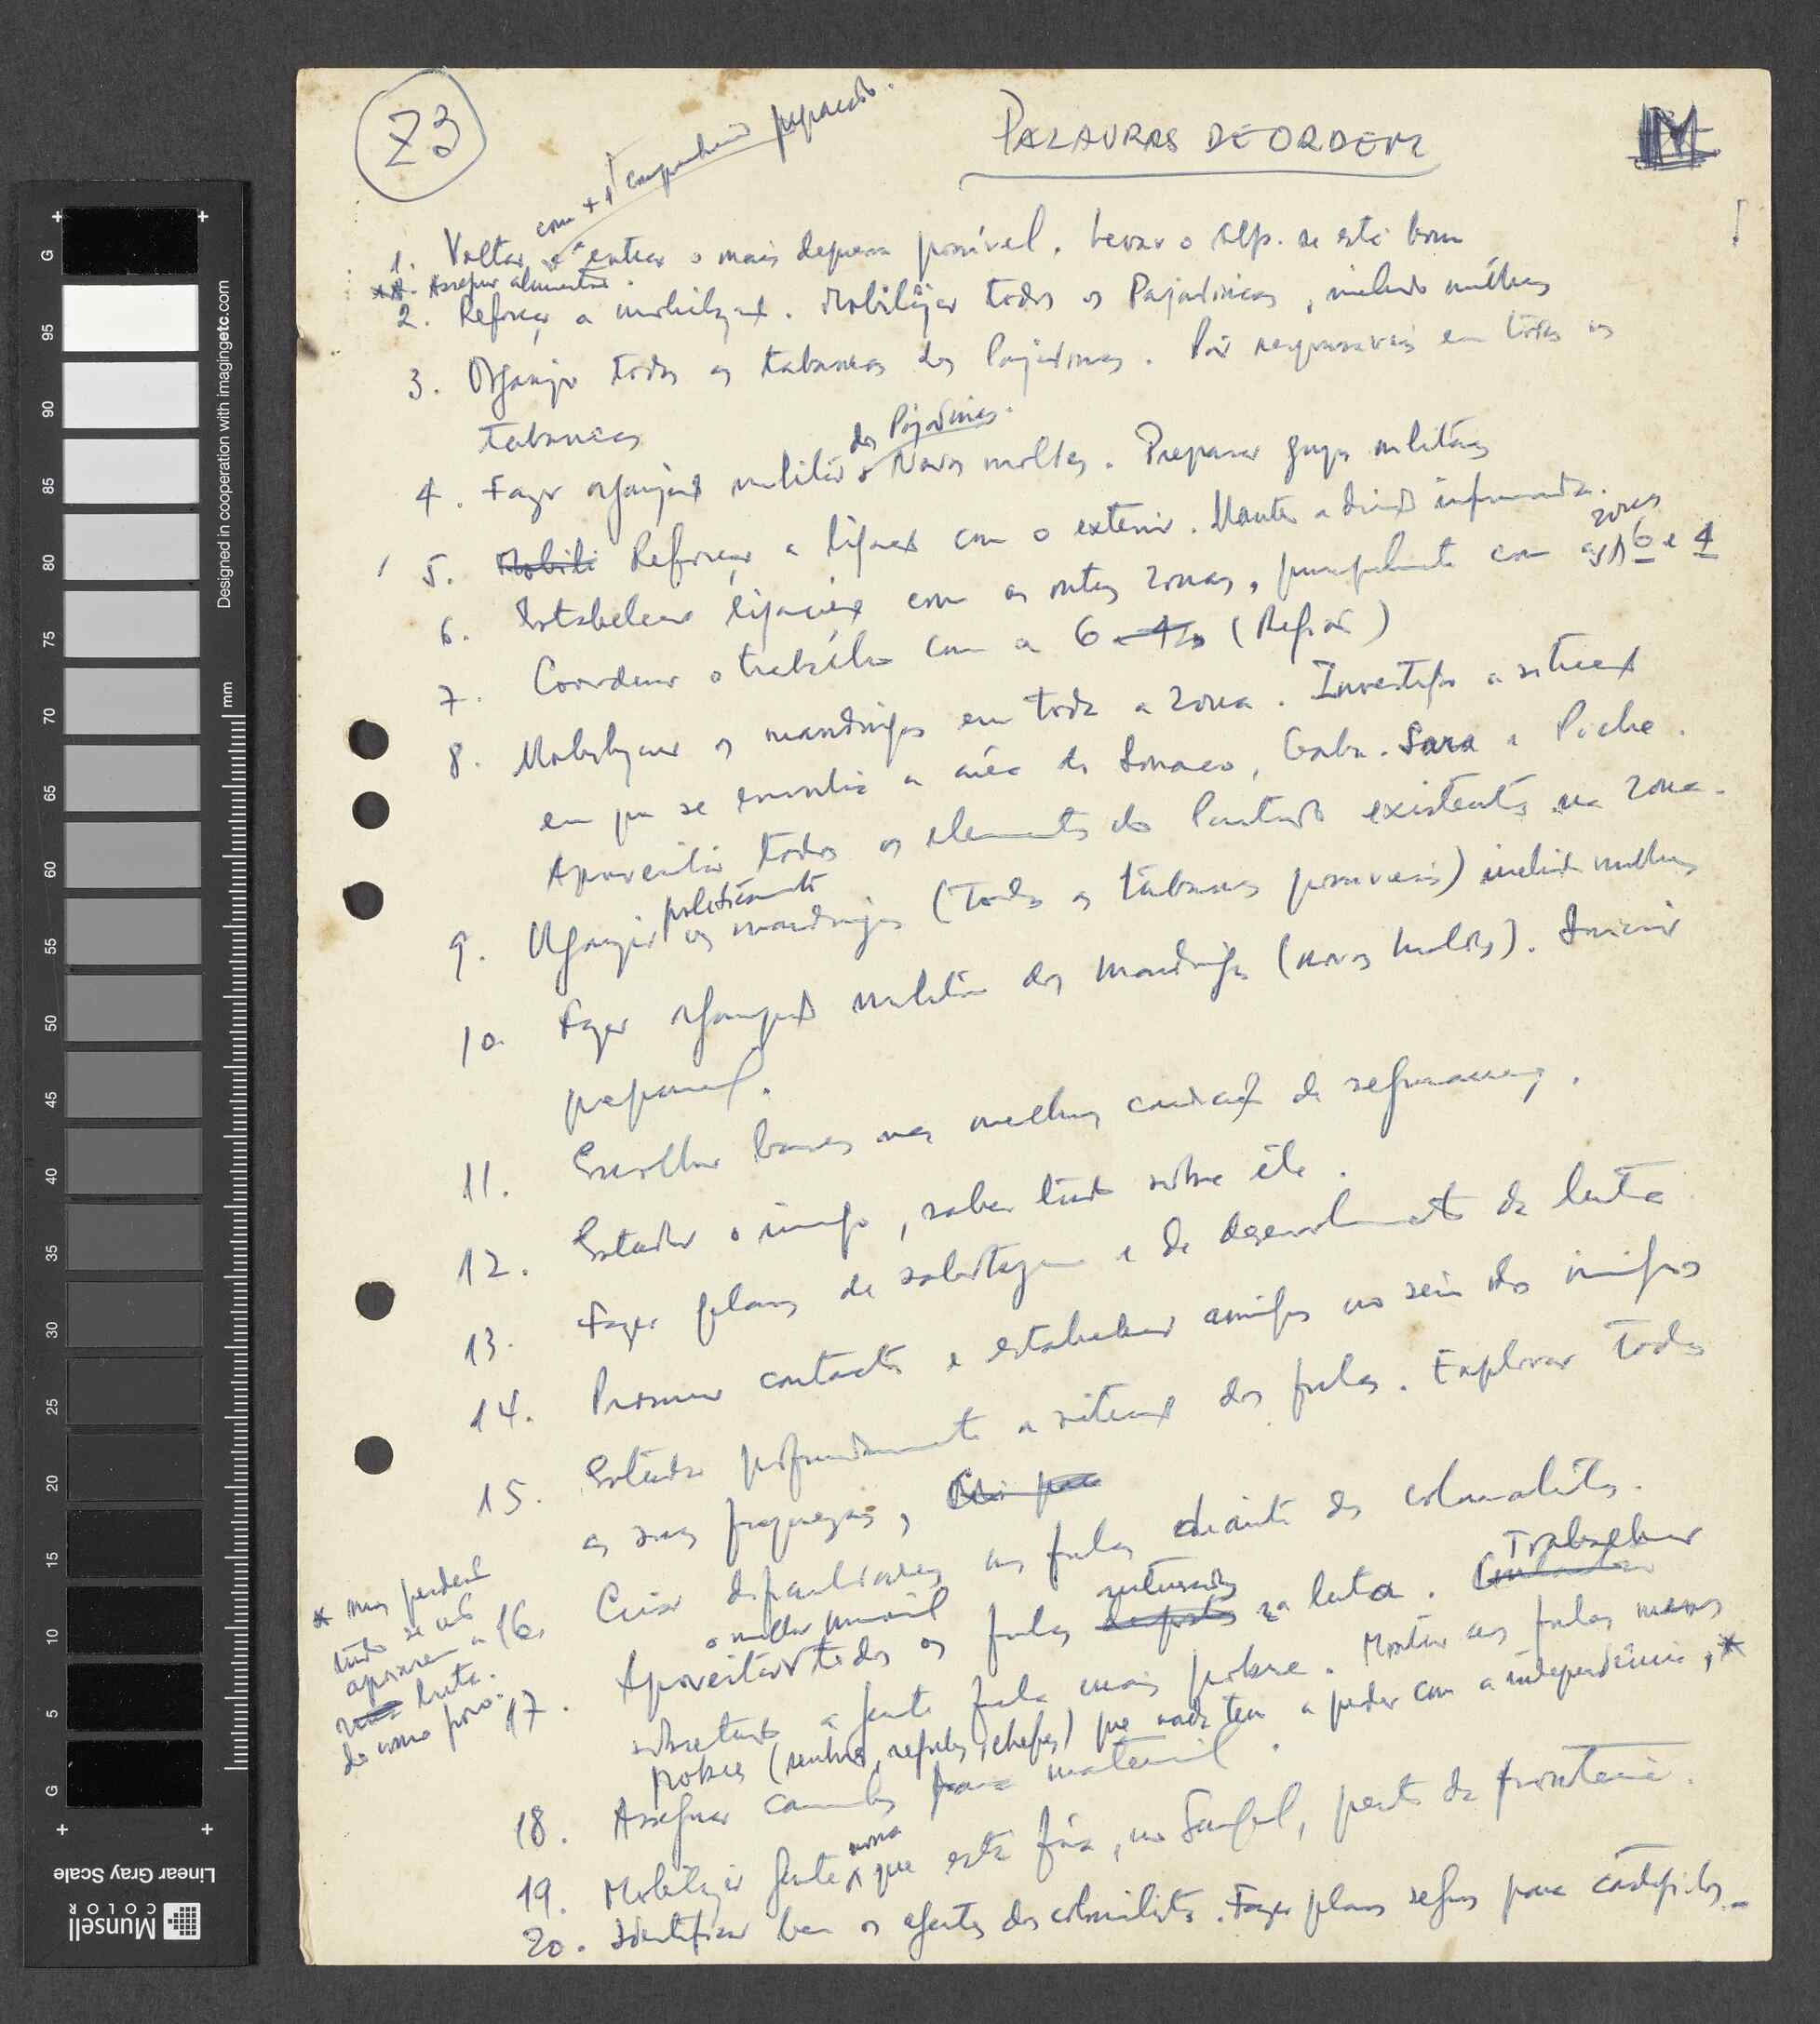 Z3
PALAVRAS DE ORDEM
com + 1 companheiro preparado.
1. Voltar e entrar o mais depressa possível. Levar o se está bom
Assegurar alimentos.
2. Reforçar a mobilização. Mobilizar todos os Pajadincas, incluindo mulheres
3. Organizar todas as tabancas dos Pajadincas. Pôr responsáveis em todas as
tabancas
4. Fazer organização militar dos Pajadincas. Novos moldes. Preparar grupos militares
5. Mobili Reforçar a ligação com o exterior. Manter a direcção informada.
6. Estabelecer ligações com as outras zonas, principalmente com as zonas 6 e 4
7. Coordenar o trabalho com a 6 (Refiai)
8. Mobilizar os mandingas em toda a zona. Investigar a situação
em que se encontra a área de Sonaco, Gabu-Sara e Piche.
Aproveitar todos os elementos do Partido existentes na zona.
9. Organizar politicamente os mandingas (todas as tabancas possíveis) incluindo mulheres
10. Fazer organização militar dos mandingas (novos moldes). Iniciar
preparação.
11. Escolher bases nas melhores condições de segurança.
12. Estudar o inimigo, saber tudo sobre êle.
13. Fazer planos de sabotagem e de desenvolvimento da luta
14. Procurar contactos e estabelecer amigos no seio dos inimigos
15. Estudar profundamente a situação dos fulas. Explorar todas
as suas fraquezas,
16. Criar dificuldades aos fulas diante dos colonialistas.
17. Aproveitar o melhor possível todos os fulas interessados na luta. Trabalhar
sobretudo a gente fula mais pobre. Mostrar aos fulas menos
pobres (senhores, régulos, chefes) que nada têm a perder com a independência, *
* mas perderão
tudo se não
apoiarem a
luta
do nosso povo.
18. Assegurar caminhos para material.
19. Mobilizar gente nossa que está fora, no Senegal, perto da fronteira.
20. Identificar bem os agentes dos colonialistas. Fazer planos seguros para castigá-los.
Designed in cooperation with imagingetc.com
mm
G
95
90
85
80
75
70
65
60
55
50
45
40
35
30
25
20
15
10
5
G
Linear Gray Scale
Munsell
COLOR